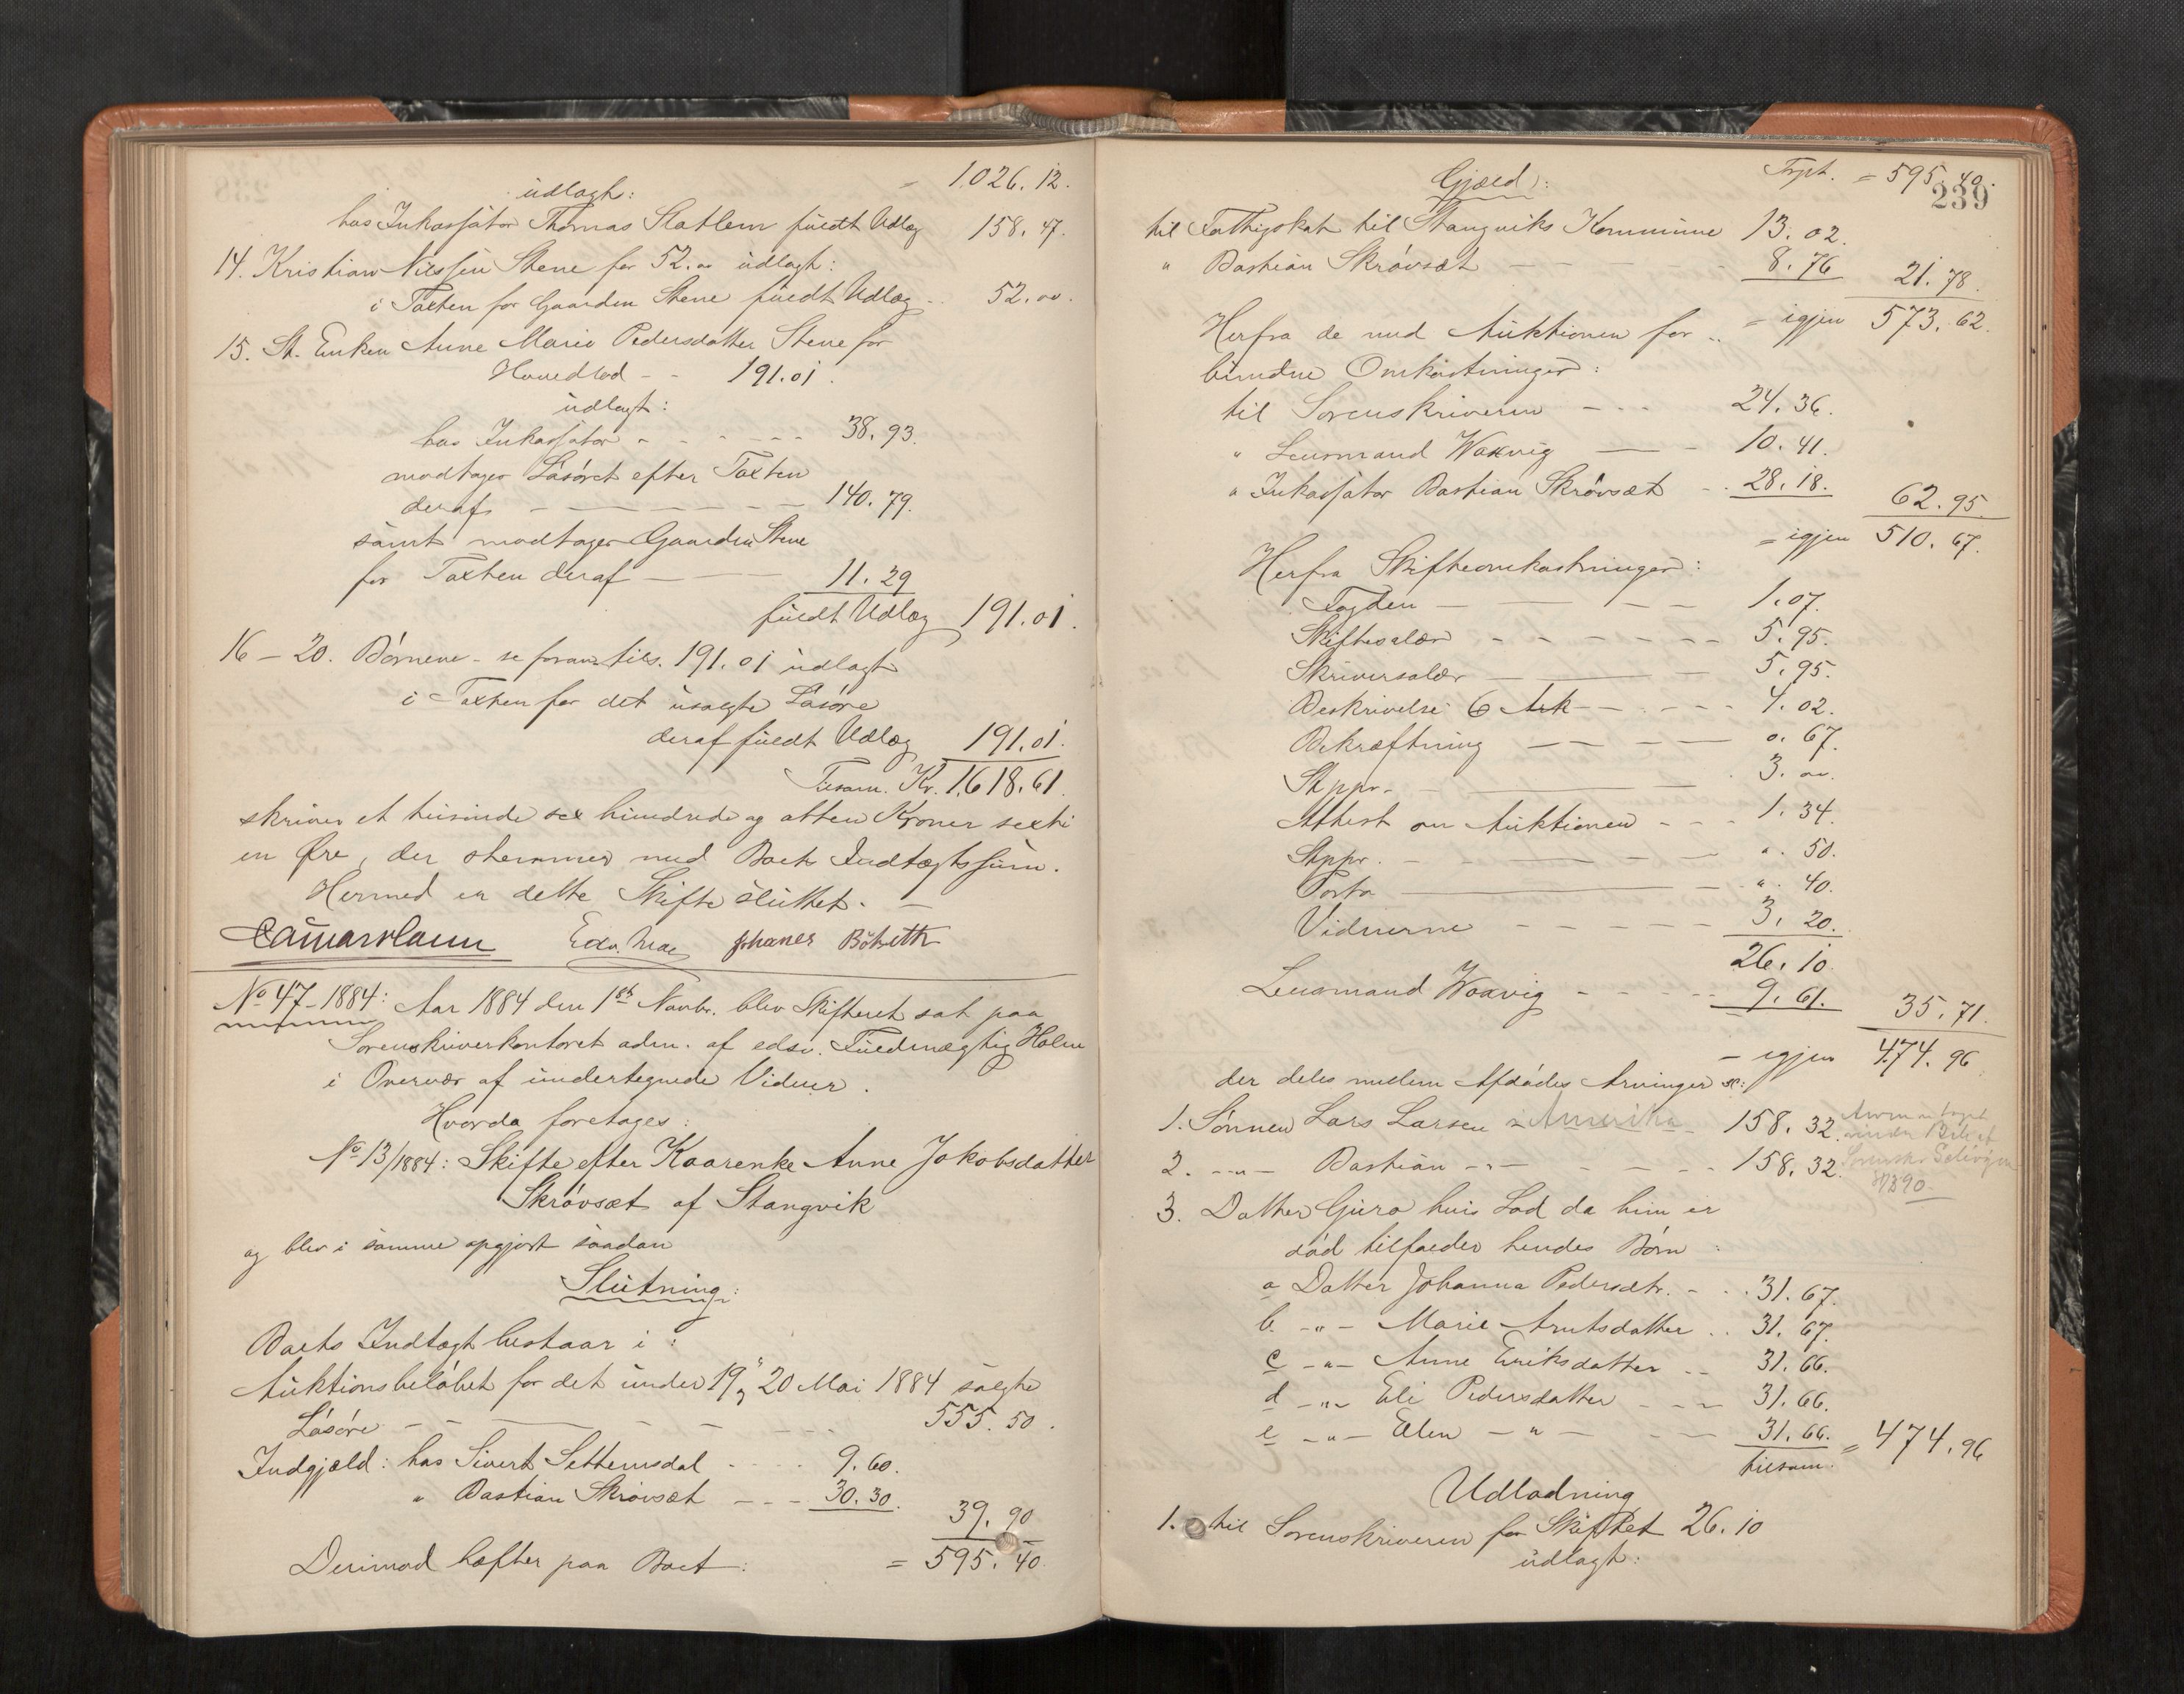 udlagt: = 1,026. 12.
hos Inkassator Thomas Slatlem fuldt Udlæg 158. 47.
14. Kristian Nilssen Stene for 52.00 udlagt:
i Taxten for Gaarden Stene fuldt Udlæg - 52. 00.
15. St. Enken Anne Marie Pedersdatter Stene for
Hovedlod - - 191.01.
udlagt:
hos Inkassator - - - - - 38. 93.
modtager Løsøret efter Taxten
deraf - - - - - 140. 79.
samt modtager Gaarden Stene
for Taxten deraf - - - 11. 29
fuldt Udlæg 191. 01.
16 - 20. Børnene - se foran tils. 191.01 udlagt
i Taxten for det usolgte Løsøre
deraf fuldt Udlæg 191.01.
Tilsam. Kr. 1,618. 61.
skriver et tusinde sex hundrede og atten Kroner sexti
en Øre, der stemmer med Boets Indtægtssum.
Hermed er dette Skifte sluttet. -
Johanes Bøhveth
No 47 - 1884: Aar 1884 den 1ste Novbr. blev Skifteret sat paa
Sorenskriverkontoret adm. af edsv. Fuldmægtig Holm
i Overvær af undertegnede Vidner.
Hvorda foretages:
No 13/1884: Skifte efter Kaarenke Anne Jakobsdatter
Skrøvsæt af Stangvik
og blev i samme opgjort saadan
Slutning:
Boets Indtægt bestaar i:
Auktionsbeløbet for det under 19 og 20 Mai 1884 solgte
Løsøre - - - - - 555. 50.
Indgjæld: hos Sivert Settemsdal - - - 9. 60.
" Bastian Skrøvsæt - - - 30. 30. 39. 90
Derimod hæfter paa Boet: = 595. 40.
239
Gjæld: Trspt. = 595. 40.
til Fattigskat til Stangviks Kommune 13. 02.
" Bastian Skrøvsæt - - - 8. 76 21. 78.
= igjen 573. 62.
Herfra de med Auktionen for -
bundne Omkostninger:
til Sorenskriveren - - - 24. 36.
" Lensmand Waxvig - - 10. 41.
" Inkassator Bastian Skrøvsæt - 28. 18. 62. 95.
= igjen 510. 67.
Herfra Skifteomkostninger:
Fogden - - - - 1. 07.
Skiftesalær - - - - - 5. 95.
Skriversalær - - - 5. 95.
Beskrivelse 6 Ark - - - - 4. 02.
Bekræftning - - - - 0. 67.
Stppr. - - - 3. 00.
Attest om Auktionen - - - 1. 34.
Stppr. - - - - ". 50.
Porto - - - ". 40.
Vidnerne - - - - - 3. 20.
26. 10.
Lensmand Waxvig - - - - 9. 61. 35. 71.
- igjen 474. 96
der deles mellem Afdødes Arvinger sc:
1. Sønnen Lars Larsen i Amerika - 158. 32.
2. -"- Bastian -"- - - - - 158. 32.
1890
3. Datter Guro hvis Lod da hun er
død tilfalder hendes Børn:
a Datter Johanna Pedersdtr. - - 31. 67.
b. -"- Marie Arntsdatter - - 31. 67.
c -"- Anne Eriksdatter - - 31. 66.
d -"- Eli Pedersdatter - - - 31. 66.
e -"- Elen -"- - - 31. 66. = 474. 96
tilsam.
Udlodning
1. til Sorenskriveren for Skiftet 26. 10
udlagt: